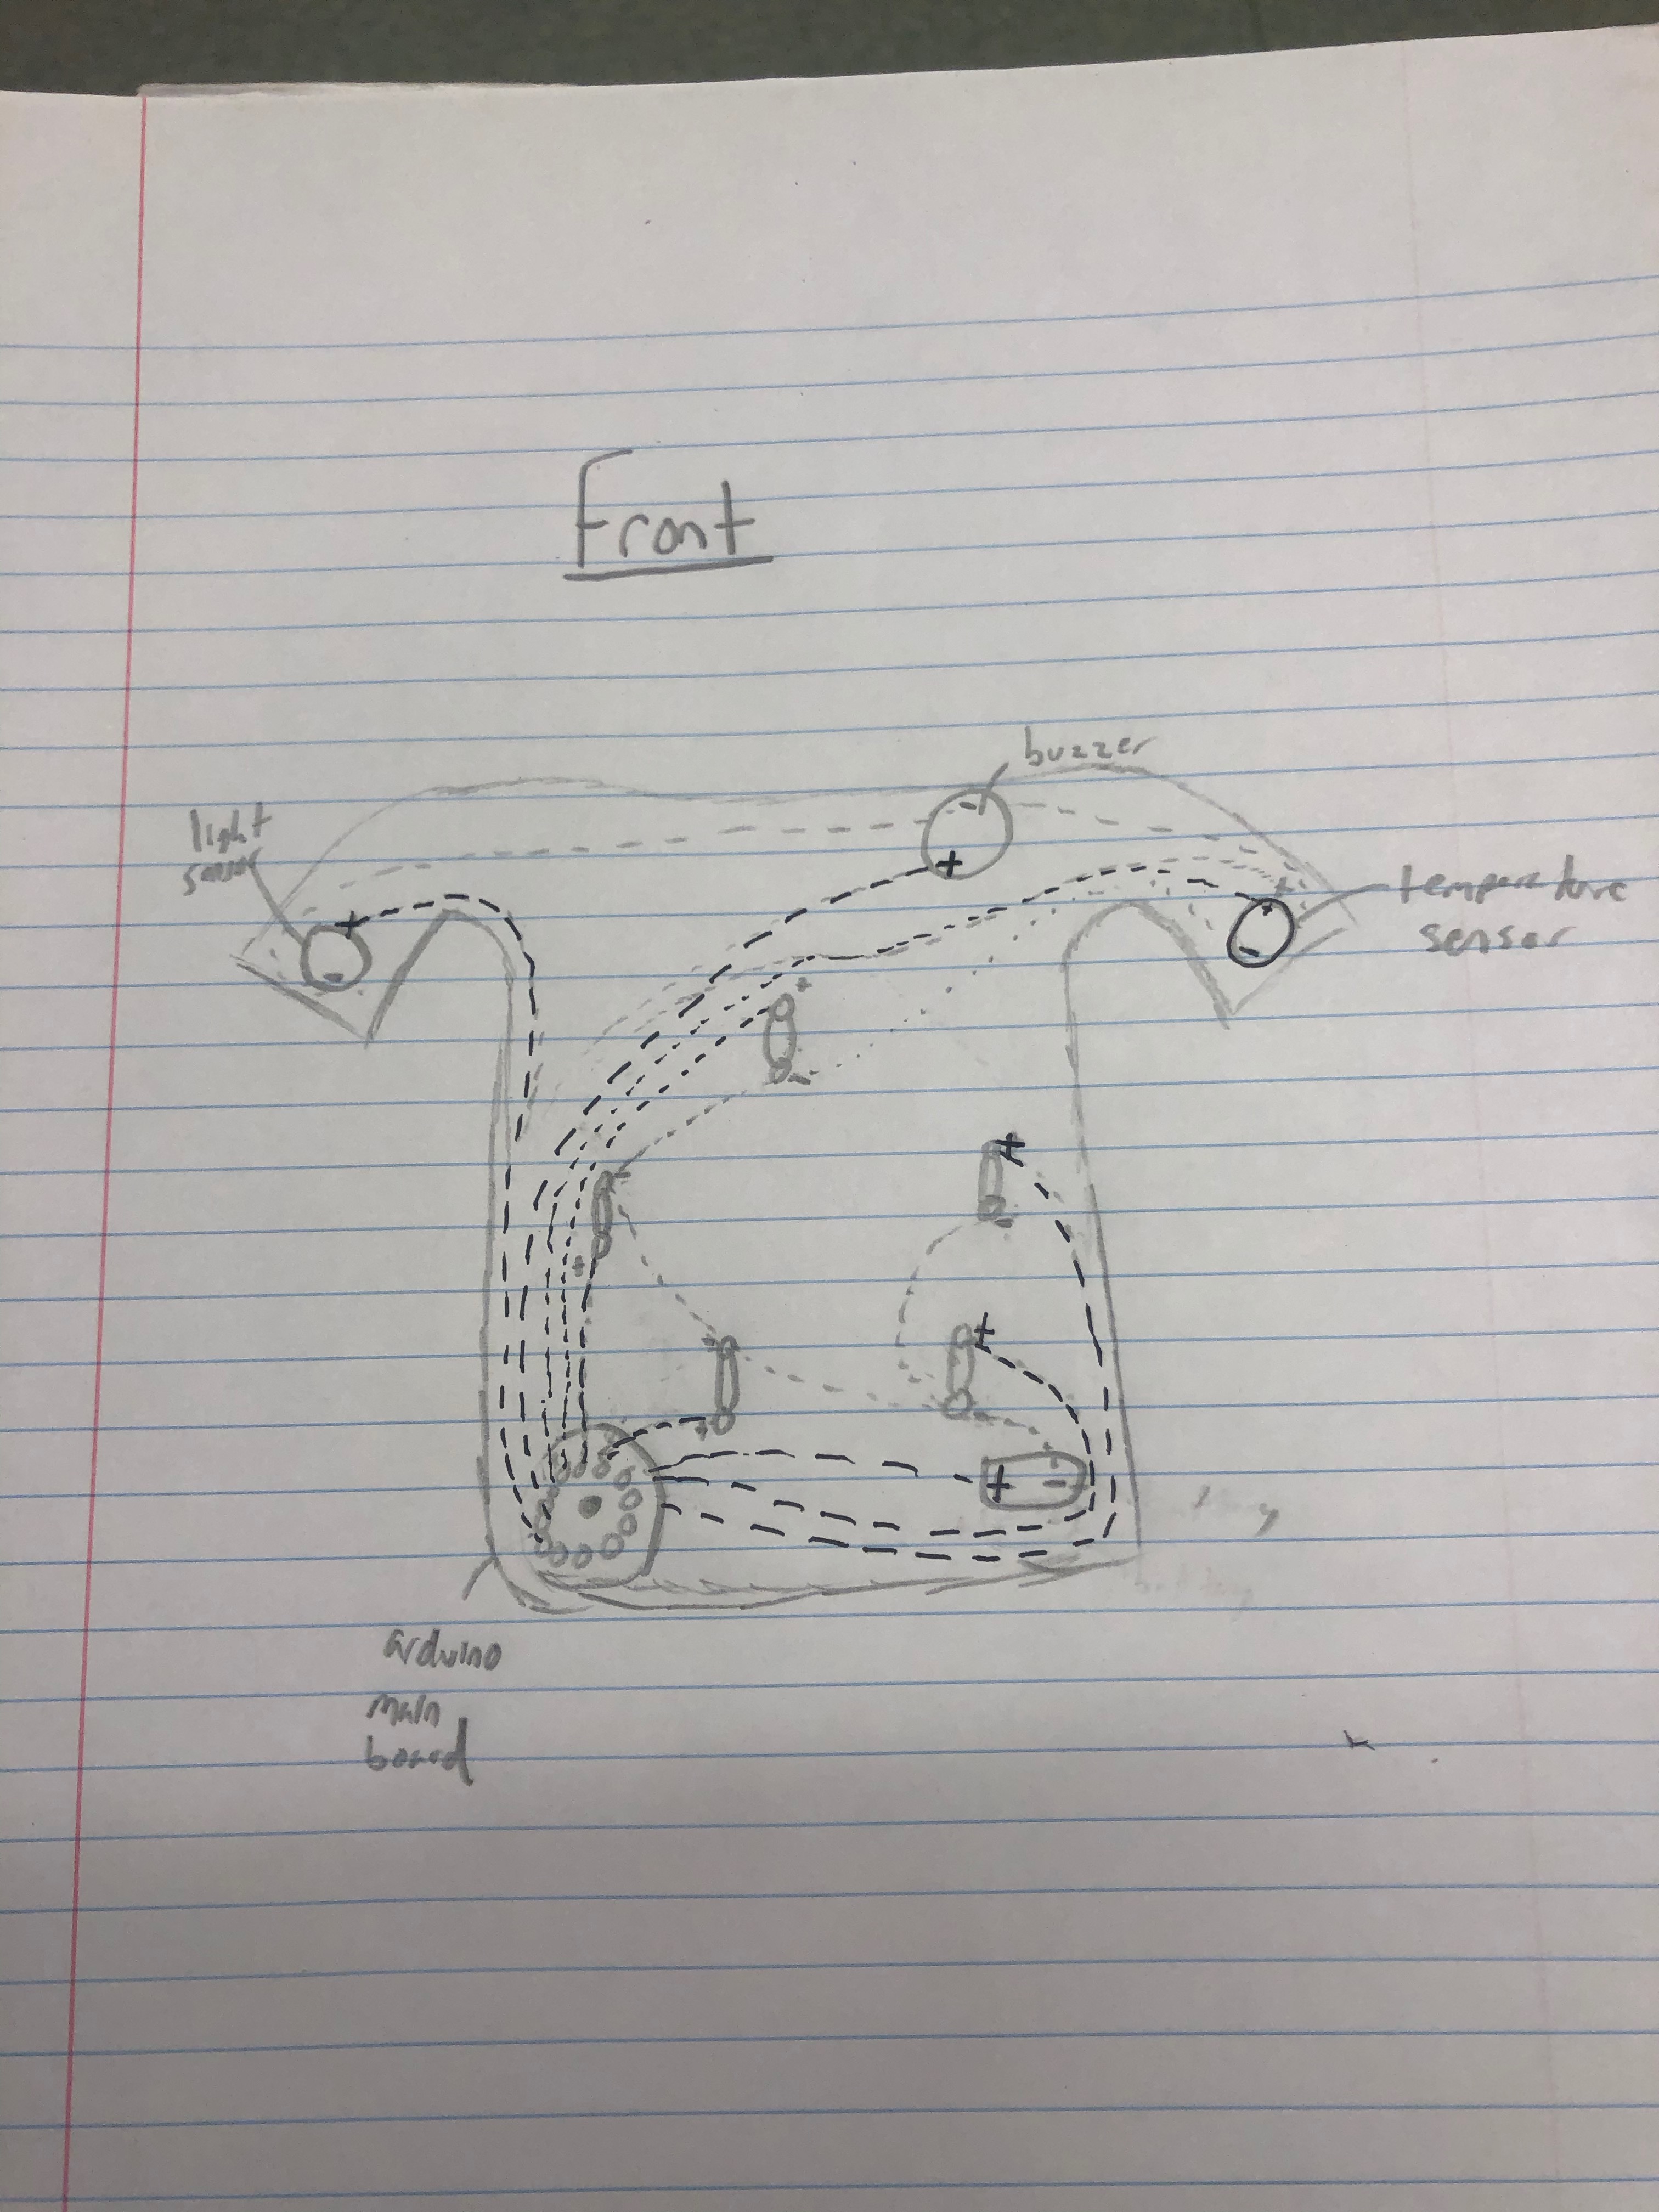 Front
buzzer
light
sensor
temperature
sensor
+
-
+
-
+
-
+
-
+
-
+
-
+
-
+
-
+
-
arduino
main
board